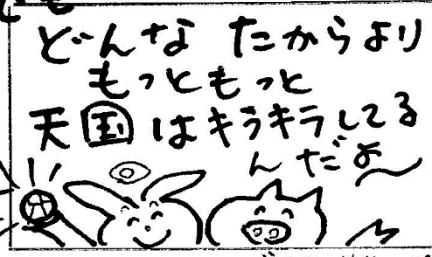 どんな たからより
もっともっと
天国はキラキラしてる
んだよ〜